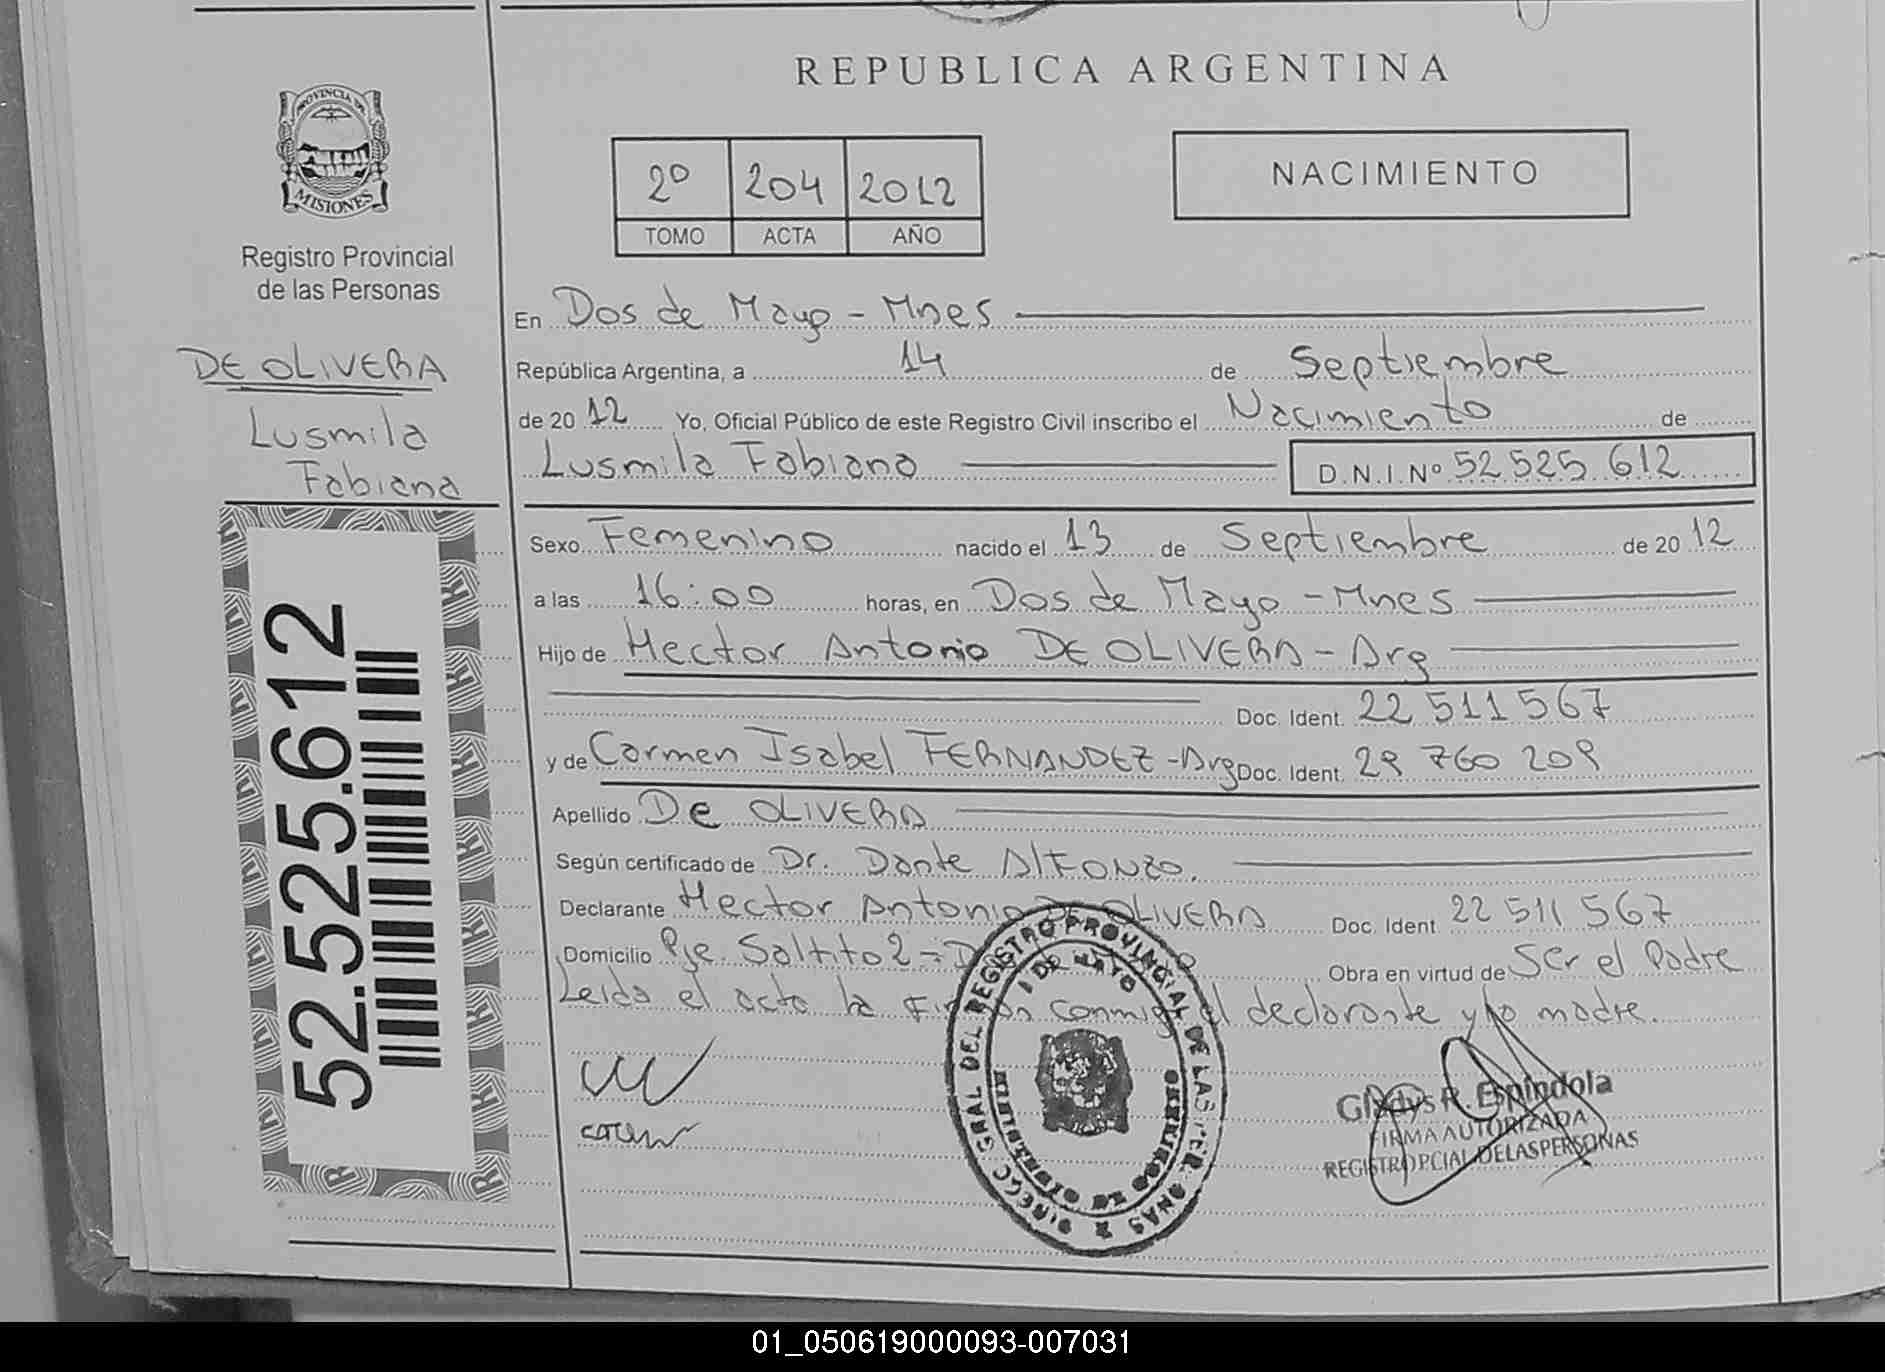 REPUBLICA ARGENTINA
PROVINCIA DE
MISIONES
Registro Provincial
de las Personas
2º 204 2012
TOMO ACTA AÑO
NACIMIENTO
DE OLIVERA
Lusmila
Fabiana
52.525.612
En Dos de Mayo - Mnes
República Argentina, a 14 de Septiembre
de 20 12 Yo, Oficial Público de este Registro Civil inscribo el Nacimiento de
Lusmila Fabiana D.N.I.Nº 52 525 612
Sexo Femenino nacido el 13 de Septiembre de 20 12
a las 16:00 horas, en Dos de Mayo - Mnes
Hijo de Hector Antonio DE OLIVERA - Arg
Doc. Ident. 22 511 567
y de Carmen Isabel FERNANDEZ - Arg Doc. Ident. 29 760 209
Apellido De OLIVERA
Según certificado de Dr. Dante Alfonzo.
Declarante Hector Antonio DE OLIVERA Doc. Ident 22 511 567
Domicilio Pje. Saltito 2 - Obra en virtud de Ser el Padre
Leida el acta la Firman conmigo el declarante y la madre.
REGISTRO PROVINCIAL DE LAS
DE MAYO
Gladys R. Espindola
FIRMA AUTORIZADA
REGISTRO PCIAL DE LAS PERSONAS
01_050619000093-007031